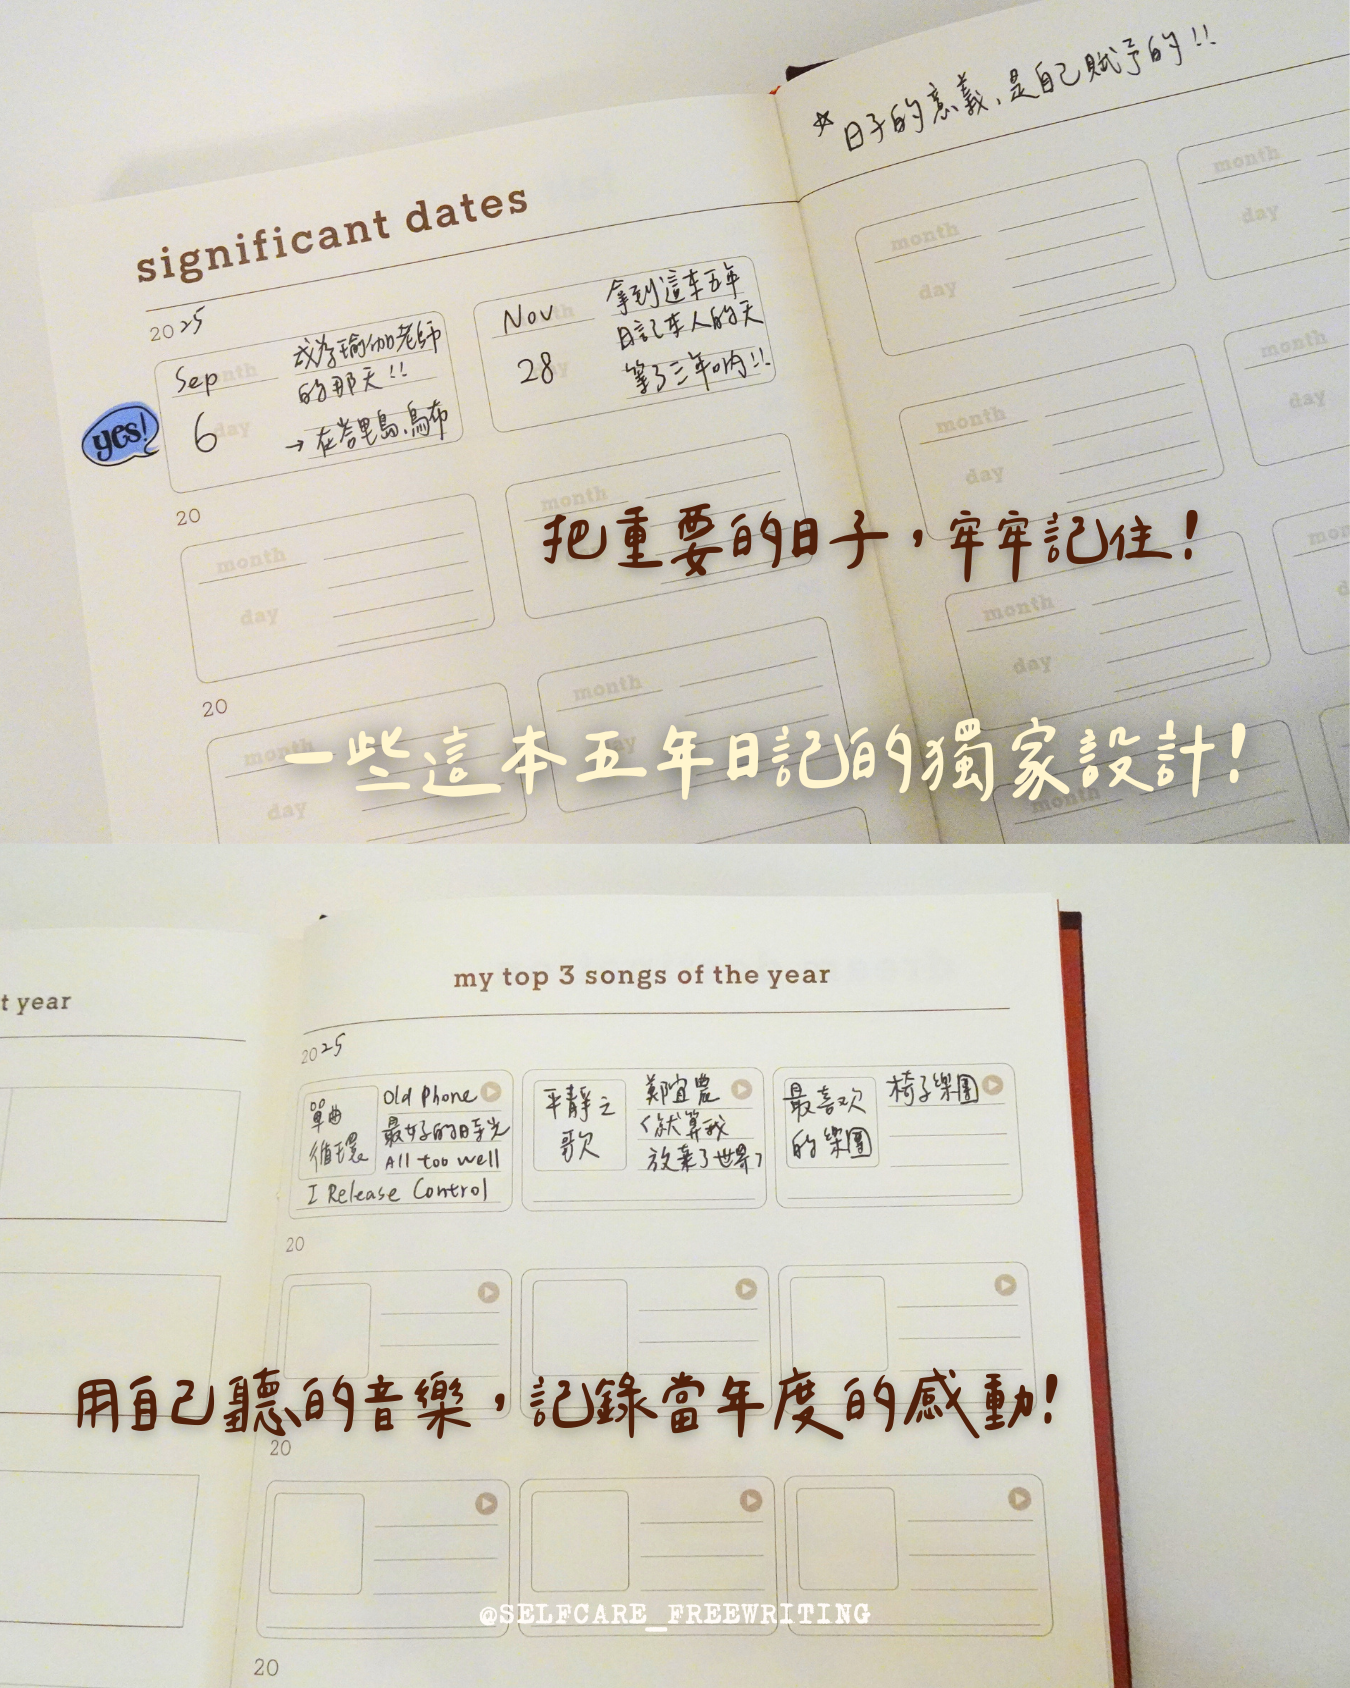 ☆日子的意義、是自己賦予的!!
significant dates
2025
Sep
6
成為瑜伽老師
的那天!!
→在峇里島、烏布
yes!
Nov
28
拿到這本五年
日記本人的天
等了三年吶!!
month
day
month
day
20
month
day
month
month
day
把重要的日子，牢牢記住！
month
day
month
day
20
month
day
month
day
month
day
month
一些這本五年日記的獨家設計！
t year
my top 3 songs of the year
2025
單曲
循環
Old Phone
最好的時光
All too well
I Release Control
平靜之
歌
鄭宜農
〈就算我
放棄了世界〉
最喜歡
的樂團
椅子樂團
20
用自己聽的音樂，記錄當年度的感動！
20
@SELFCARE_FREEWRITING
20